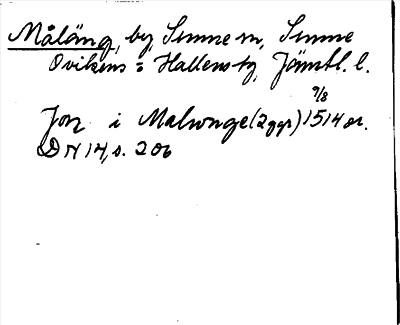 Måläng, by, Sunne sn, Sunne
Ovikens o Hallens tg, Jämtl. l.
9/8
Jon i Malunge (2 ggr) 1514 or.
DN 14, s. 206